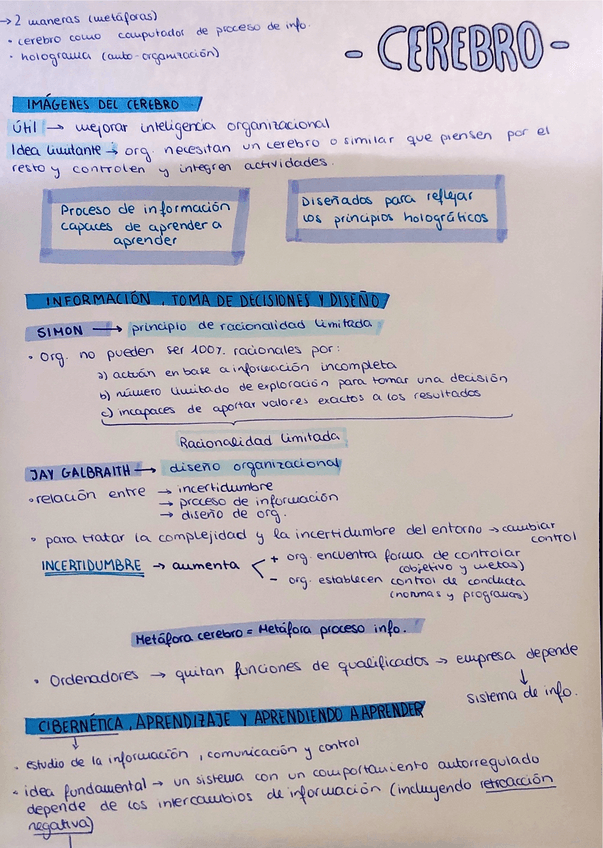 → 2 maneras (metáforas)
• cerebro como computador de proceso de info.
• holograma (auto-organización)
- CEREBRO -
IMÁGENES DEL CEREBRO
Útil → mejorar inteligencia organizacional
Idea limitante → org. necesitan un cerebro o similar que piensen por el
resto y controlen y integren actividades.
Proceso de información
capaces de aprender a
aprender
Diseñados para reflejar
los principios holográficos
INFORMACIÓN, TOMA DE DECISIONES Y DISEÑO
SIMON → principio de racionalidad limitada
• Org. no pueden ser 100% racionales por:
a) actúan en base a información incompleta
b) número limitado de exploración para tomar una decisión
c) incapaces de aportar valores exactos a los resultados
Racionalidad limitada
JAY GALBRAITH → diseño organizacional
• relación entre → incertidumbre
→ proceso de información
→ diseño de org.
• para tratar la complejidad y la incertidumbre del entorno → cambiar
control
INCERTIDUMBRE → aumenta
+ org. encuentra forma de controlar
(objetivo y metas)
- org. establecen control de conducta
(normas y programas)
Metáfora cerebro = Metáfora proceso info.
• Ordenadores → quitan funciones de qualificados → empresa depende
↓
sistema de info.
CIBERNÉTICA, APRENDIZAJE Y APRENDIENDO A APRENDER
• estudio de la información, comunicación y control
• idea fundamental → un sistema con un comportamiento autorregulado
depende de los intercambios de información (incluyendo retroacción
negativa)